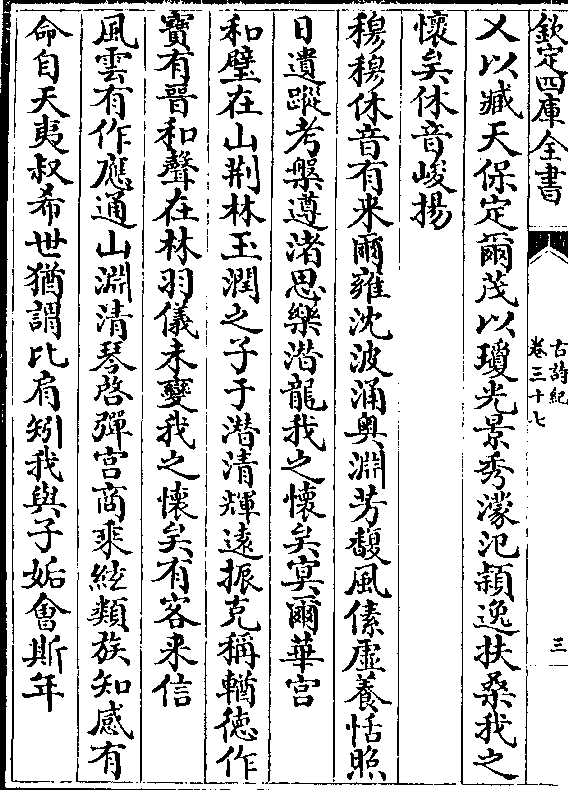 欽定四庫全書
古詩紀
卷三十七
三
乂以臧天保定爾茂以瓊光景秀濛汜穎逸扶桑我之
懷矣休音峻揚
穆穆休音有来爾雍沈波涌奥淵芳馥風傃虛養恬照
日遺蹤考槃遵渚思樂潜龍我之懷矣寘爾華宫
和璧在山荆林玉潤之子于潜清輝遠振克稱輶徳作
寶有晉和聲在林羽儀未變我之懷矣有客来信
風雲有作應通山淵清琴啓彈宫商乘絃類族知感有
命自天夷叔希世猶謂比肩矧我與子姤會斯年